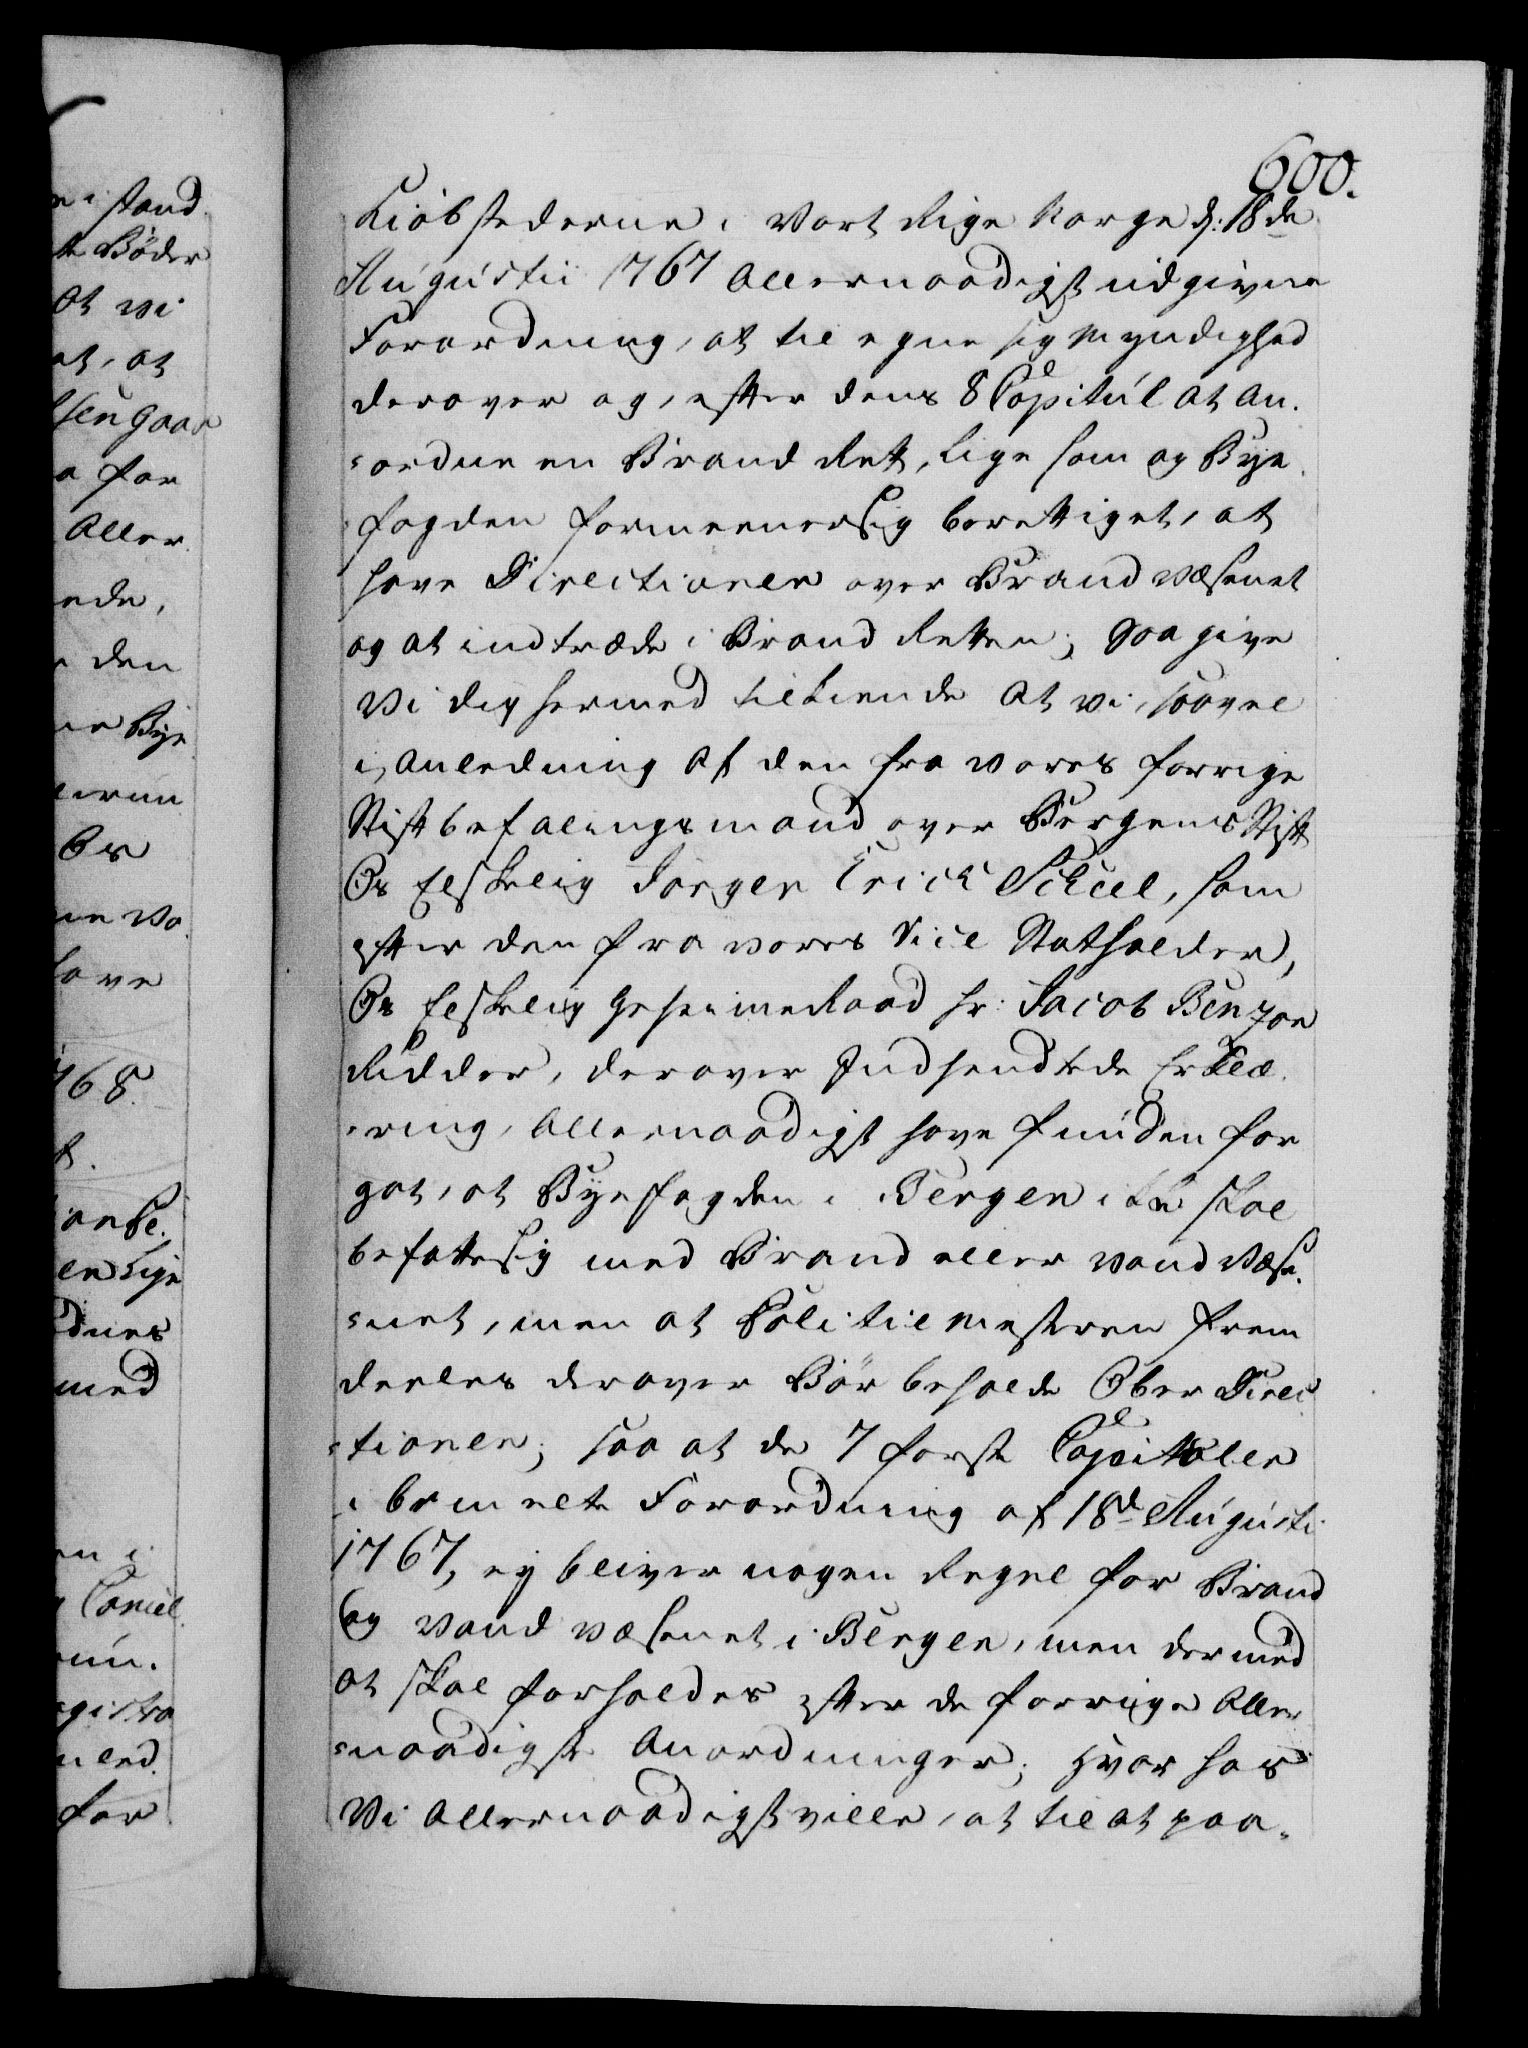 600.
Kiöbstederne i Vort Rige Norge d: 18de
Augustii 1767 Allernaadigst udgivne
Forordning, at tilegne sig Myndighed
derover og, efter dens 8de Capitul at an-
-ordne en Brand Ret, lige som og Bye
-fogden formeener sig berettiget, at
have Directionen over Brand Væsenet
og at indtræde i Brand Retten; Saa give
Vi dig hermed tilkiende At vi, saavel
i Anledning Af den fra vores forrige
Stiftbefalingsmand over Bergens Stift
Os Elskelig Jørgen Erick Scheel, som
efter den fra vores Vice Statholder,
Os Elskelig Geheimeraad Hr: Jacob Benzon
Ridder, derover Indsendte Erklæ-
-ring, Allernaadigst have funden for
got, at Byefogden i Bergen ikke skal
befatte sig med Brand eller Vand Væse-
-net, men at Politiemesteren frem
deeles derover Bör beholde Ober Direc
-tionen; saa at de 7 forste Capitoler
i bemelte Forordning af 18de Augusti
1767, ey bliver nogen Regel for Brand
og Vand Væsenet i Bergen, men dermed
at skal forholdes efter de forrige Aller
-naadigste Anordninger; Hvor hos
Vi Allernaadigst ville, at til at paa-
n i stand
te Böder
At vi
et, at
for
Aller
ede,
den
ne Bye
have
1768.
med
for